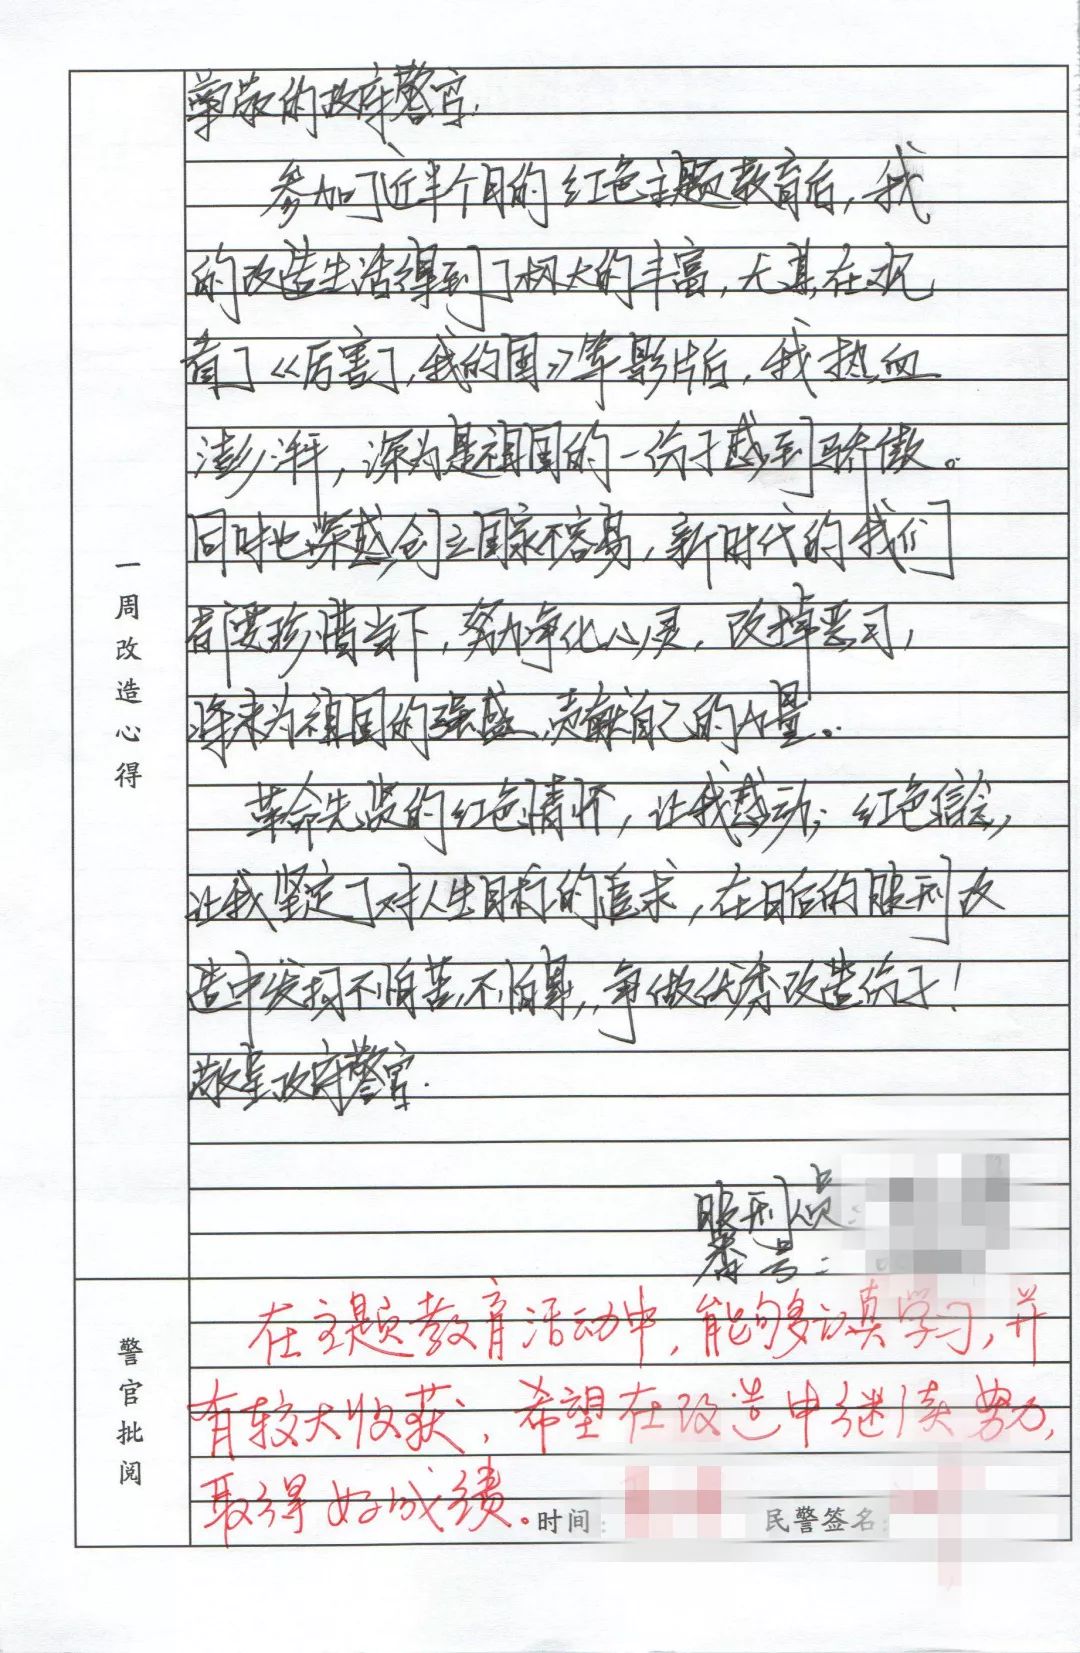 一周改造心得
尊敬的政府警官.
参加了近半个月的红色主题教育后，我
的改造生活得到了极大的丰富，尤其在观
看了《厉害了，我的国》等影片后，我热血
澎湃，深为是祖国的一份子感到骄傲。
同时也深感创立国家不容易，新时代的我们
都要珍惜当下，努力净化心灵，改掉恶习，
将来为祖国的强盛贡献自己的力量。
革命先贤的红色情怀，让我感动；红色信念，
让我坚定了对人生目标的追求，在日后的服刑改
造中发扬不怕苦，不怕累，争做优秀改造份子！
敬呈政府警官.
服刑员：
番号：
警官批阅
在主题教育活动中，能够认真学习，并
有较大收获，希望在改造中继续努力，
取得好成绩。
时间： 民警签名：